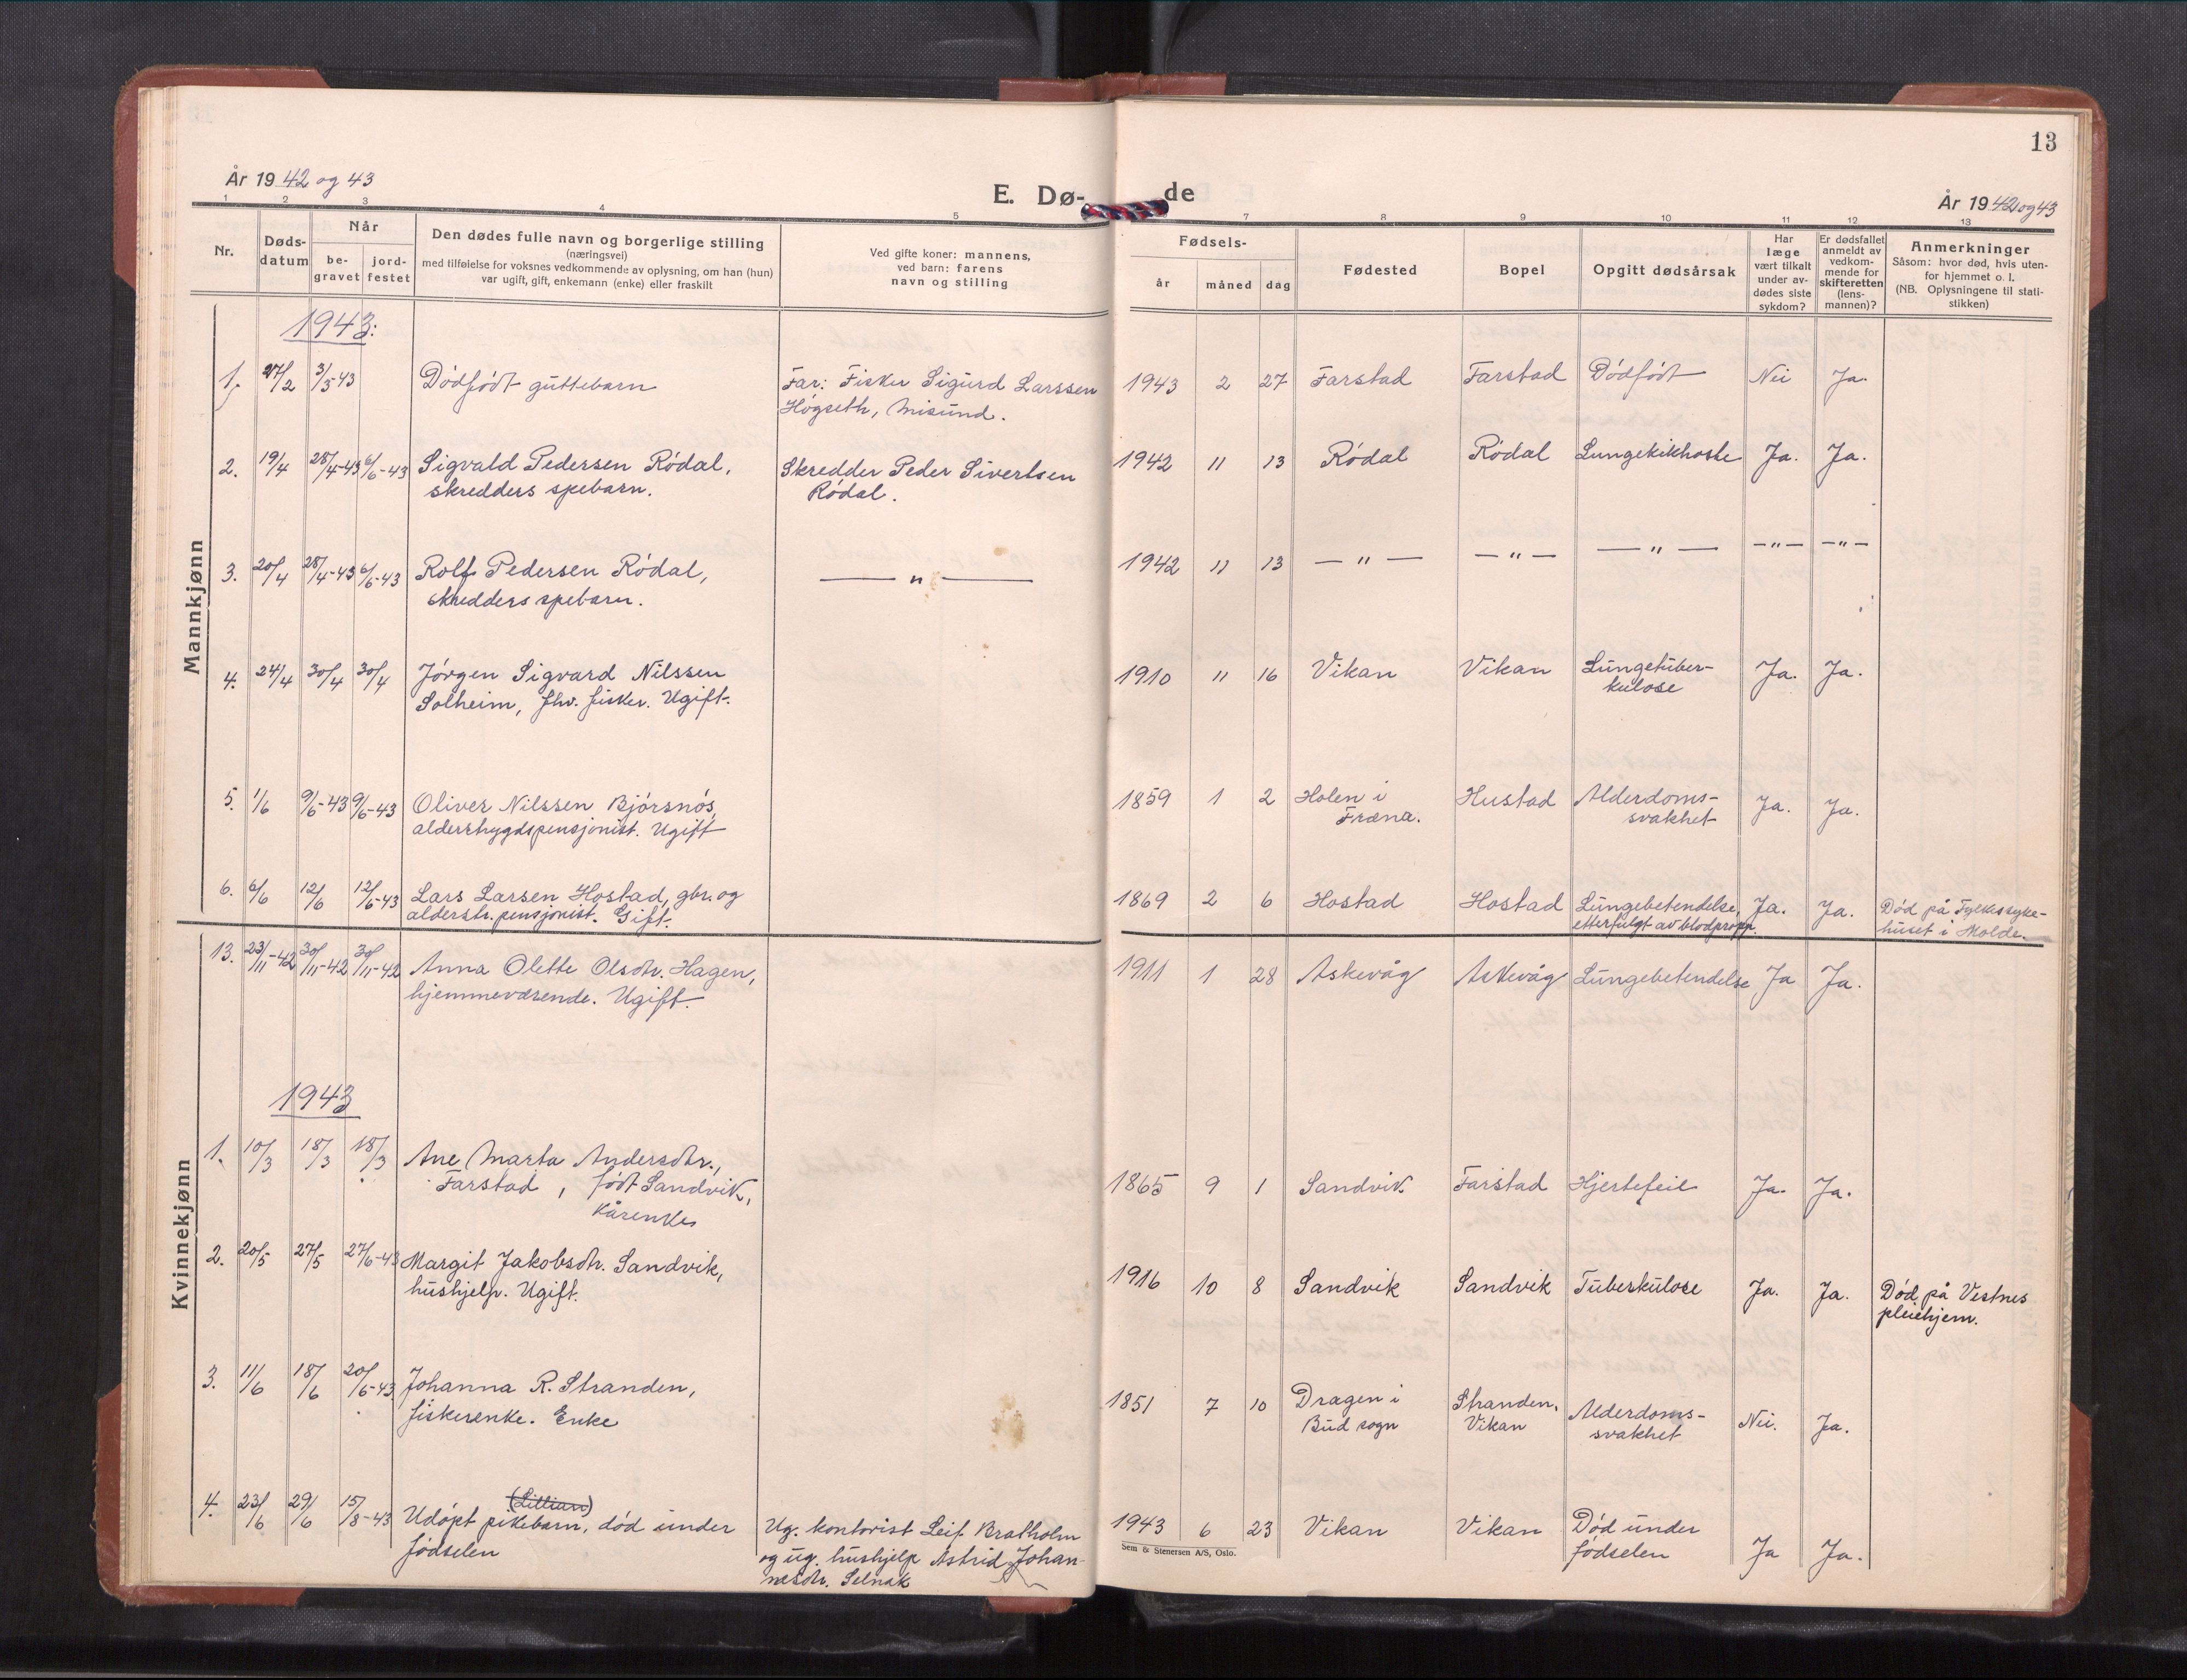 13
År 1942 og 43
E. Dø-
de
År 1942 og 43
1 2 3 4 5 7 8 9 10 11 12 13
Nr.
Døds-
datum
Når
be-
gravet
jord-
festet
Den dødes fulle navn og borgerlige stilling
(næringsvei)
med tilføielse for voksnes vedkommende av oplysning, om han (hun)
var ugift, gift, enkemann (enke) eller fraskilt
Ved gifte koner: mannens,
ved barn: farens
navn og stilling
Fødsels-
år måned dag
Fødested
Bopel
Opgitt dødsårsak
Har
læge
vært tilkalt
under av-
dødes siste
sykdom?
Er dødsfallet
anmeldt av
vedkom-
mende for
skifteretten
(lens-
mannen)?
Anmerkninger
Såsom: hvor død, hvis uten-
for hjemmet o. l.
(NB. Oplysningene til stati-
stikken)
Mannkjønn
1943:
1. 27/2 3/5-43 Dødfødt guttebarn Far: Fisker Sigurd Larssen 1943 2 27 Farstad Farstad Dødfødt Nei Ja.
Høgseth, Misund.
2. 19/4 28/4-43 6/6-43 Sigvald Pedersen Rödal, Skredder Peder Sivertsen 1942 11 13 Rödal Rödal Lungekikhoste Ja. Ja.
skredders spebarn. Rödal.
3. 20/4 28/4-43 6/6-43 Rolf Pedersen Rödal, — " — 1942 11 13 — " — — " — — " — — " — — " —
skredders spebarn.
4. 24/4 30/4 30/4 Jørgen Sigvard Nilssen 1910 11 16 Vikan Vikan Lungetuber- Ja. Ja.
Solheim, fhv. fisker. Ugift. kulose
5. 1/6 9/6-43 9/6-43 Oliver Nilssen Bjørsnøs, 1859 1 2 Holen i Hustad Alderdoms- Ja. Ja.
alderstrygdspensjonist. Ugift Fræna. svakhet
6. 6/6 12/6 12/6-43 Lars Larsen Hostad, gbr. og 1869 2 6 Hostad Hostad Lungebetendelse, Ja. Ja. Død på Fylkessyke-
alderstr. pensjonist. Gift. etterfulgt av blodpropp. huset i Molde.
Kvinnekjønn
13. 23/11-42 30/11-42 30/11-42 Anna Olette Olsdtr. Hagen, 1911 1 28 Askevåg Askevåg Lungebetendelse Ja Ja.
hjemmeværende. Ugift.
1943
1. 10/3 18/3 18/3 Ane Marta Andersdtr., 1865 9 1 Sandvik Farstad Hjertefeil Ja. Ja.
Farstad, født Sandvik,
kårenke
2. 20/5 27/5 27/6-43 Margit Jakobsdtr. Sandvik, 1916 10 8 Sandvik Sandvik Tuberkulose Ja. Ja. Død på Vestnes
hushjelp. Ugift. pleiehjem.
3. 11/6 18/6 20/6-43 Johanna R. Stranden, 1851 7 10 Dragen i Stranden, Alderdoms- Nei. Ja.
fiskerenke. Enke Bud sogn Vikan svakhet
(Lillian)
4. 23/6 29/6 15/8-43 Udøpt pikebarn, død under Ug. kontorist Leif Bratholm 1943 6 23 Vikan Vikan Død under Ja Ja.
fødselen og ug. hushjelp Astrid Johan- fødselen
nesdtr. Selnak
Sem & Stenersen A/S, Oslo.